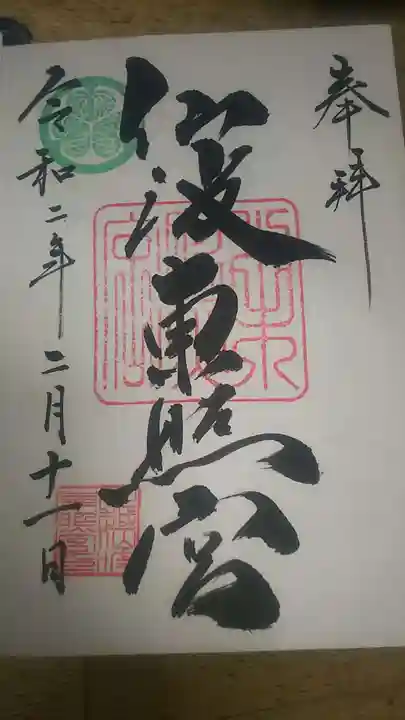 奉拝
仙波東照宮
令和二年二月十一日